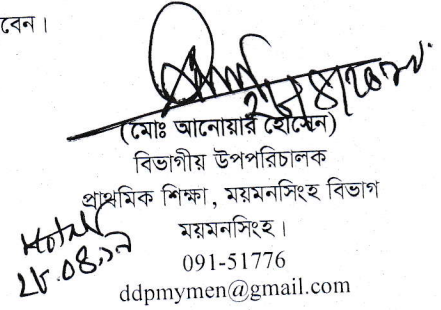 বেন।
(মোঃ আনোয়ার হোসেন)
বিভাগীয় উপপরিচালক
প্রাথমিক শিক্ষা, ময়মনসিংহ বিভাগ
ময়মনসিংহ।
091-51776
ddpmymen@gmail.com